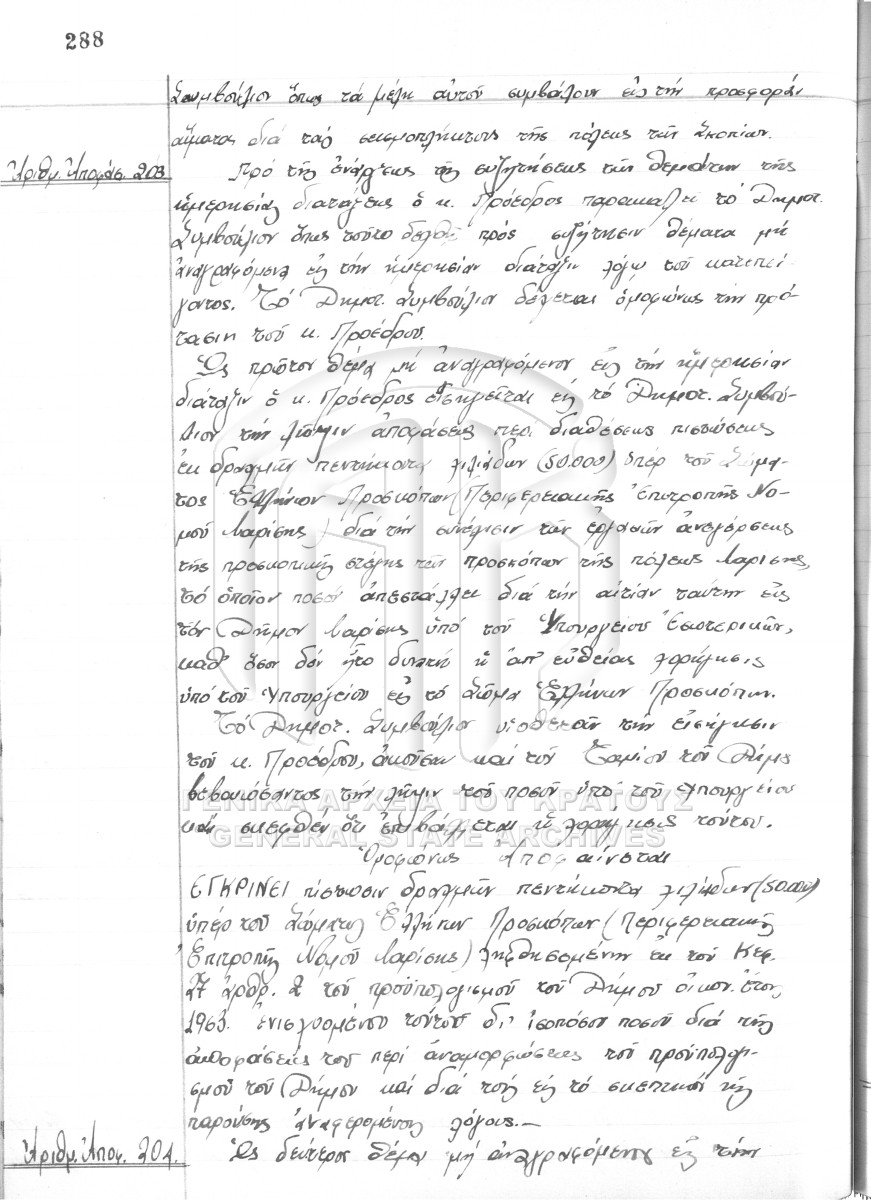 288
Συμβούλιον ὅπως τά μέλη αὐτοῦ συμβάλουν εἰς τήν προσφοράν
αἵματος διά τούς σεισμοπλήκτους τῆς πόλεως τῶν Σκοπίων.
Ἀριθμ. Ἀποφάσ. 203
Πρό τῆς ἐνάρξεως τῆς συζητήσεως τῶν θεμάτων τῆς
ἡμερησίας διατάξεως ὁ κ. Πρόεδρος παρακαλεῖ τό Δημοτ.
Συμβούλιον ὅπως τοῦτο δεχθῇ πρός συζήτησιν θέματα μή
ἀναγραφόμενα εἰς τήν ἡμερησίαν διάταξιν λόγω τοῦ κατεπεί-
γοντος. Τό Δημοτ. Συμβούλιον δέχεται ὁμοφώνως τήν πρό-
τασιν τοῦ κ. Προέδρου.
Ὡς πρῶτον θέμα μή ἀναγραφόμενον εἰς τήν ἡμερησίαν
διάταξιν ὁ κ. Πρόεδρος εἰσηγεῖται εἰς τό Δημοτ. Συμβού-
λιον τήν λῆψιν ἀποφάσεως περί διαθέσεως πιστώσεως
ἐκ δραχμῶν πεντήκοντα χιλιάδων (50.000) ὑπέρ τοῦ Σώμα-
τος Ἑλλήνων Προσκόπων (Περιφερειακῆς Ἐπιτροπῆς Νο-
μοῦ Λαρίσης) διά τήν συνέχισιν τῶν ἐργασιῶν ἀνεγέρσεως
τῆς προσκοπικῆς στέγης τῶν προσκόπων τῆς πόλεως Λαρίσης,
τό ὁποῖον ποσόν ἀπεστάλη διά τήν αἰτίαν ταύτην εἰς
τόν Δῆμον Λαρίσης ὑπό τοῦ Ὑπουργείου Ἐσωτερικῶν,
καθ' ὅσον δέν ἦτο δυνατή ἡ ἀπ' εὐθείας χορήγησις
ὑπό τοῦ Ὑπουργείου εἰς τό Σῶμα Ἑλλήνων Προσκόπων.
Τό Δημοτ. Συμβούλιον υἱοθετοῦν τήν εἰσήγησιν
τοῦ κ. Προέδρου, ἀκοῦσαν καί τοῦ Ταμίου τοῦ Δήμου
βεβαιώσαντος τήν λῆψιν τοῦ ποσοῦ ὑπό τοῦ Ὑπουργείου
καί σκεφθέν ὅτι ἐπιβάλλεται ἡ χορήγησις τούτου.
ΓΕΝΙΚΑ ΑΡΧΕΙΑ ΤΟΥ ΚΡΑΤΟΥΣ
GENERAL STATE ARCHIVES
Ὁμοφώνως Ἀποφαίνεται
ΕΓΚΡΙΝΕΙ πίστωσιν δραχμῶν πεντήκοντα χιλιάδων (50.000)
ὑπέρ τοῦ Σώματος Ἑλλήνων Προσκόπων (Περιφερειακῆς
Ἐπιτροπῆς Νομοῦ Λαρίσης) ληφθησομένην ἐκ τοῦ Κεφ.
27 ἄρθρ. 2 τοῦ προϋπολογισμοῦ τοῦ Δήμου οἰκον. ἔτους
1963. ἐνισχυομένου τούτου δι' ἰσοπόσου ποσοῦ διά τῆς
ἀποφάσεώς του περί ἀναμορφώσεως τοῦ προϋπολογι-
σμοῦ τοῦ Δήμου καί διά τούς εἰς τό σκεπτικόν τῆς
παρούσης ἀναφερομένους λόγους.—
Ἀριθμ. Ἀποφ. 204.
Ὡς δεύτερον θέμα μή ἀναγραφόμενον εἰς τήν